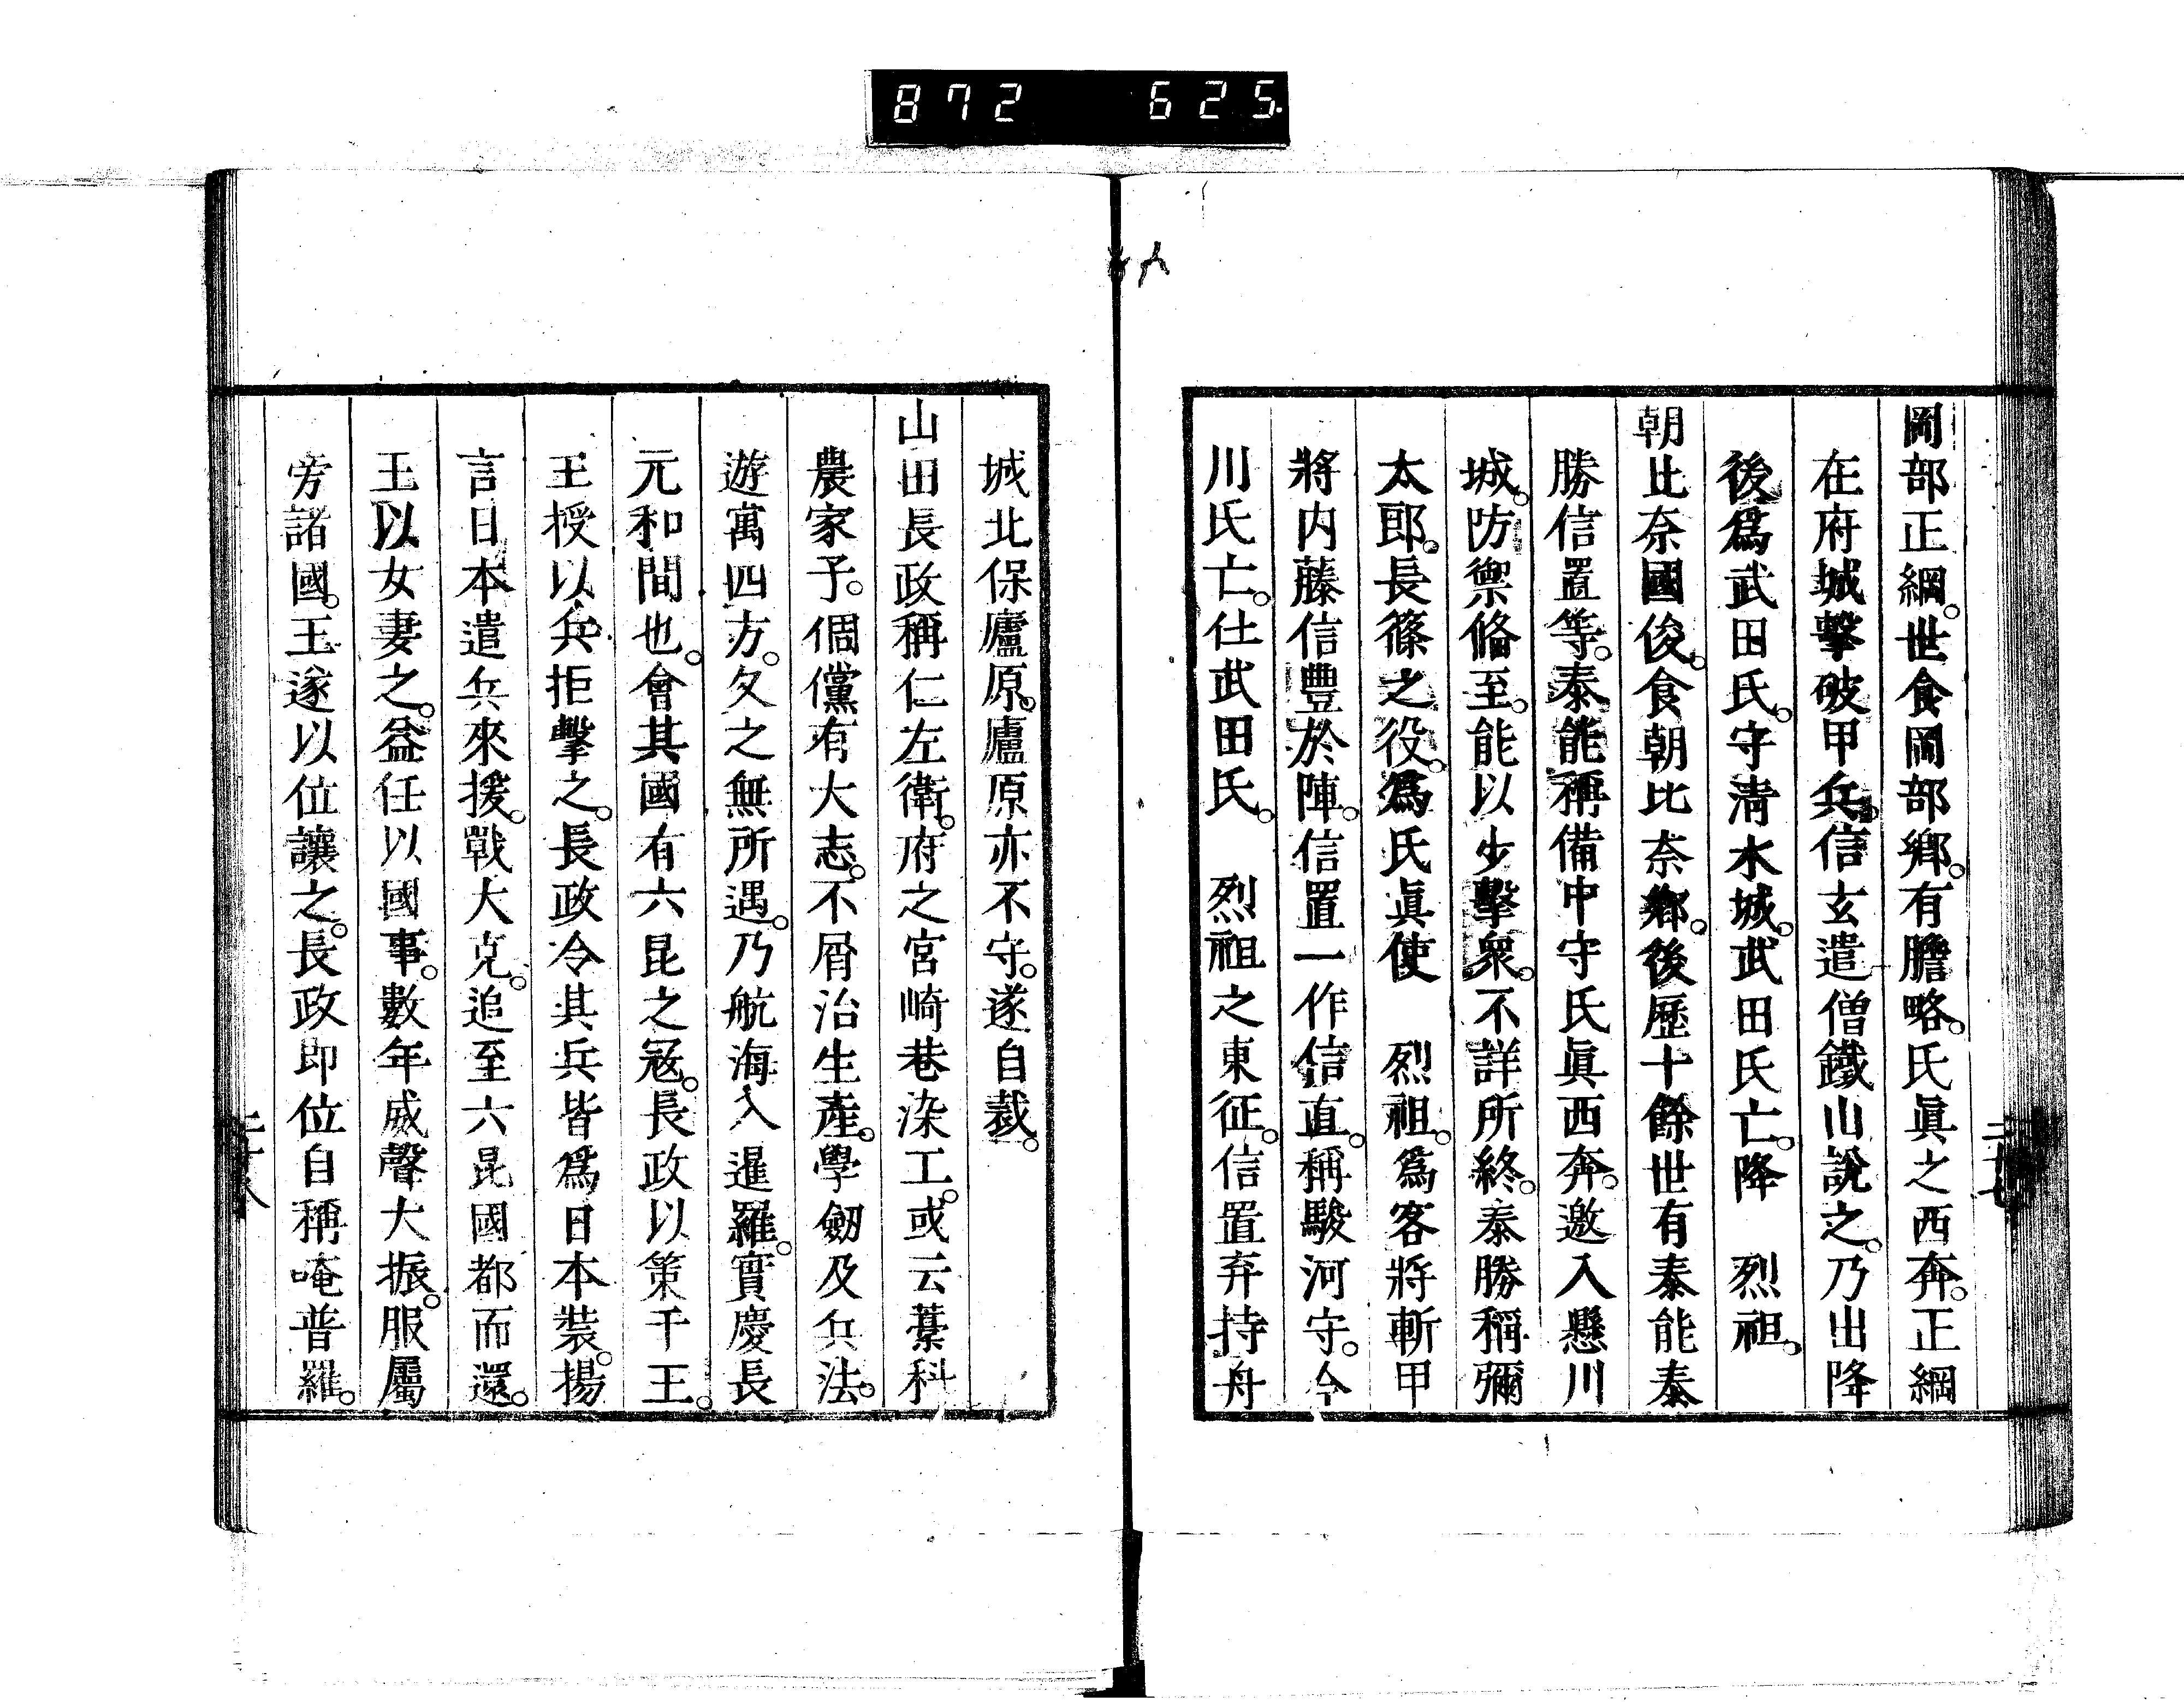 872 625
岡部正綱。世食岡部鄉。有膽略。氏眞之西奔。正綱
在府城擊破甲兵。信玄遣僧鐵山說之。乃出降
後爲武田氏。守淸水城。武田氏亡。降　烈祖。
朝比奈國俊。食朝比奈鄉。後歷十餘世有泰能泰
勝信置等。泰能稱備中守氏眞西奔。邀入懸川
城。防禦脩至。能以少擊衆。不詳所終。泰勝稱彌
太郎。長篠之役。爲氏眞使　烈祖。爲客將斬甲
將内藤信豐於陣。信置一作信直。稱駿河守。今
川氏亡。仕武田氏。　烈祖之東征。信置弃持舟
城北保廬原。廬原亦不守。遂自裁。
山田長政稱仁左衛。府之宮崎巷染工。或云藁科
農家子。倜儻有大志。不屑治生產。學劒及兵法。
遊寓四方。久之無所遇。乃航海入暹羅。實慶長
元和間也。會其國有六昆之寇。長政以策干王。
王授以兵拒擊之。長政令其兵皆爲日本裝。揚
言日本遣兵來援。戰大克。追至六昆國都而還。
王以女妻之。益任以國事。數年威聲大振。服屬
旁諸國。王遂以位讓之。長政即位自稱唵普羅。